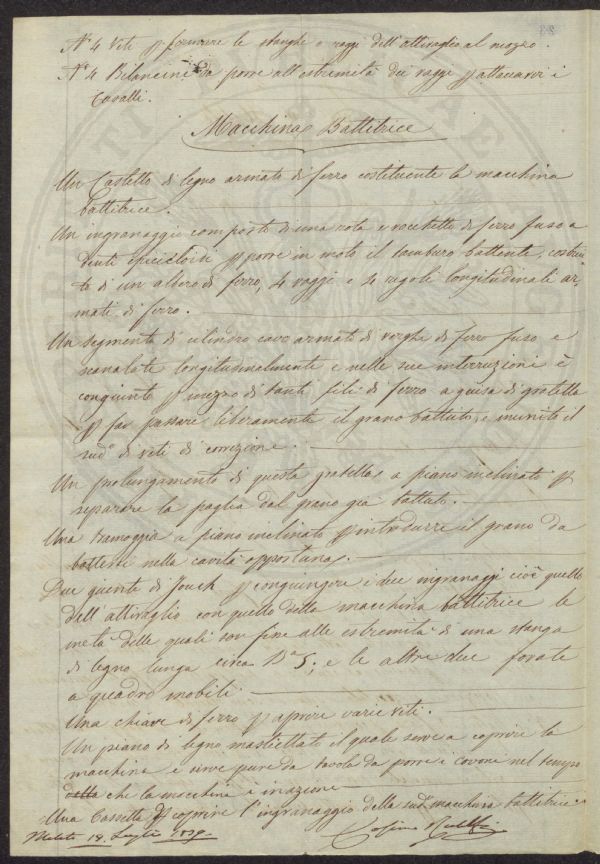 N° 4 Viti p formare le stanghe o raggi dell'attiraglio al mozzo.
N° 4 Bilancini da porre all'estremità dei raggi p attaccarvi i
Cavalli.
Macchina Battitrice
Un Castello di legno armato di ferro costituente la macchina
battitrice.
Un ingranaggio composto di una rota e rocchetto di ferro fuso a
denti epicicloidi p porre in moto il tamburo battente, costrui-
to di un albero di ferro, 4 raggi e 4 regoli longitudinali ar-
mati di ferro.
Un segmento di cilindro cavo armato di verghe di ferro fuso e
scanalate longitudinalmente e nelle sue interruzioni è
congiunto p mezzo di tanti fili di ferro a guisa di gratella
p far passare liberamente il grano battuto, e munito il
sud.° di viti di correzione.
Un prolungamento di questa gratella a piano inclinato p
separare la paglia dal grano già battuto.
Una tramoggia a piano inclinato p introdurre il grano da
battersi nella cavità opportuna.
Due giunte di Jouch p congiungere i due ingranaggi cioè quello
dell'attiraglio con quello della macchina battitrice le
metà delle quali son fine alle estremità di una stanga
di legno lunga circa B.a 5, e le altre due forate
a quadro mobili
Una chiave di ferro p aprire varie viti.
Un piano di legno mastiettato il quale serve a coprire la
macchina e serve pure da tavola da porre i covoni nel tempo
della che la macchina è in azione
Una Cassetta p coprire l'ingranaggio della sud.a macchina battitrice.
18. Luglio 1859. Cosimo